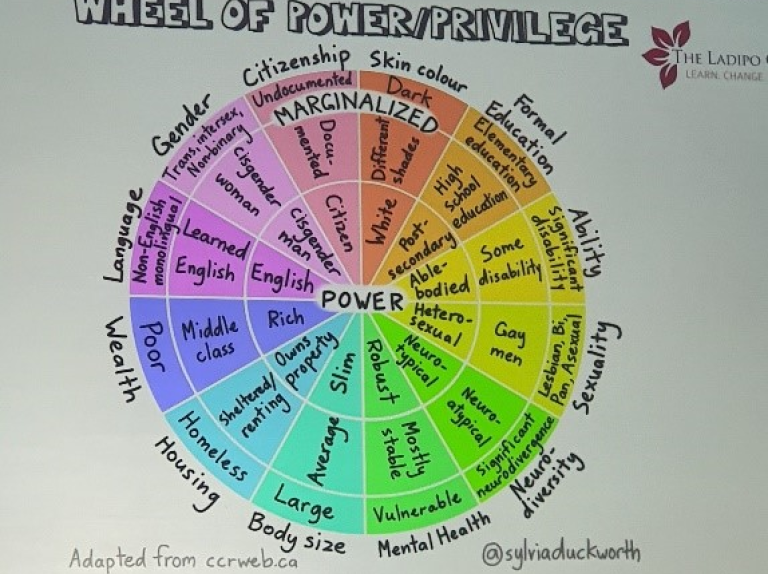 WHEEL OF POWER/PRIVILEGE
THE LADIPO
LEARN. CHANGE
Citizenship
Undocumented
Docu-
mented
Citizen
Skin colour
Dark
Different
shades
White
MARGINALIZED
Formal
Education
Elementary
education
High
school
education
Post-
secondary
Ability
Significant
disability
Some
disability
Able-
bodied
Sexuality
Lesbian, Bi,
Pan, Asexual
Gay
men
Hetero-
sexual
Neuro-
diversity
Significant
neurodivergence
Neuro-
atypical
Neuro-
typical
Mental Health
Vulnerable
Mostly
stable
Robust
Body size
Large
Average
Slim
Housing
Homeless
Sheltered/
renting
Owns
property
Wealth
Poor
Middle
class
Rich
Language
Non-English
monolingual
Learned
English
English
Gender
Trans, intersex,
Nonbinary
Cisgender
woman
Cisgender
man
POWER
Adapted from ccrweb.ca
@sylviaduckworth